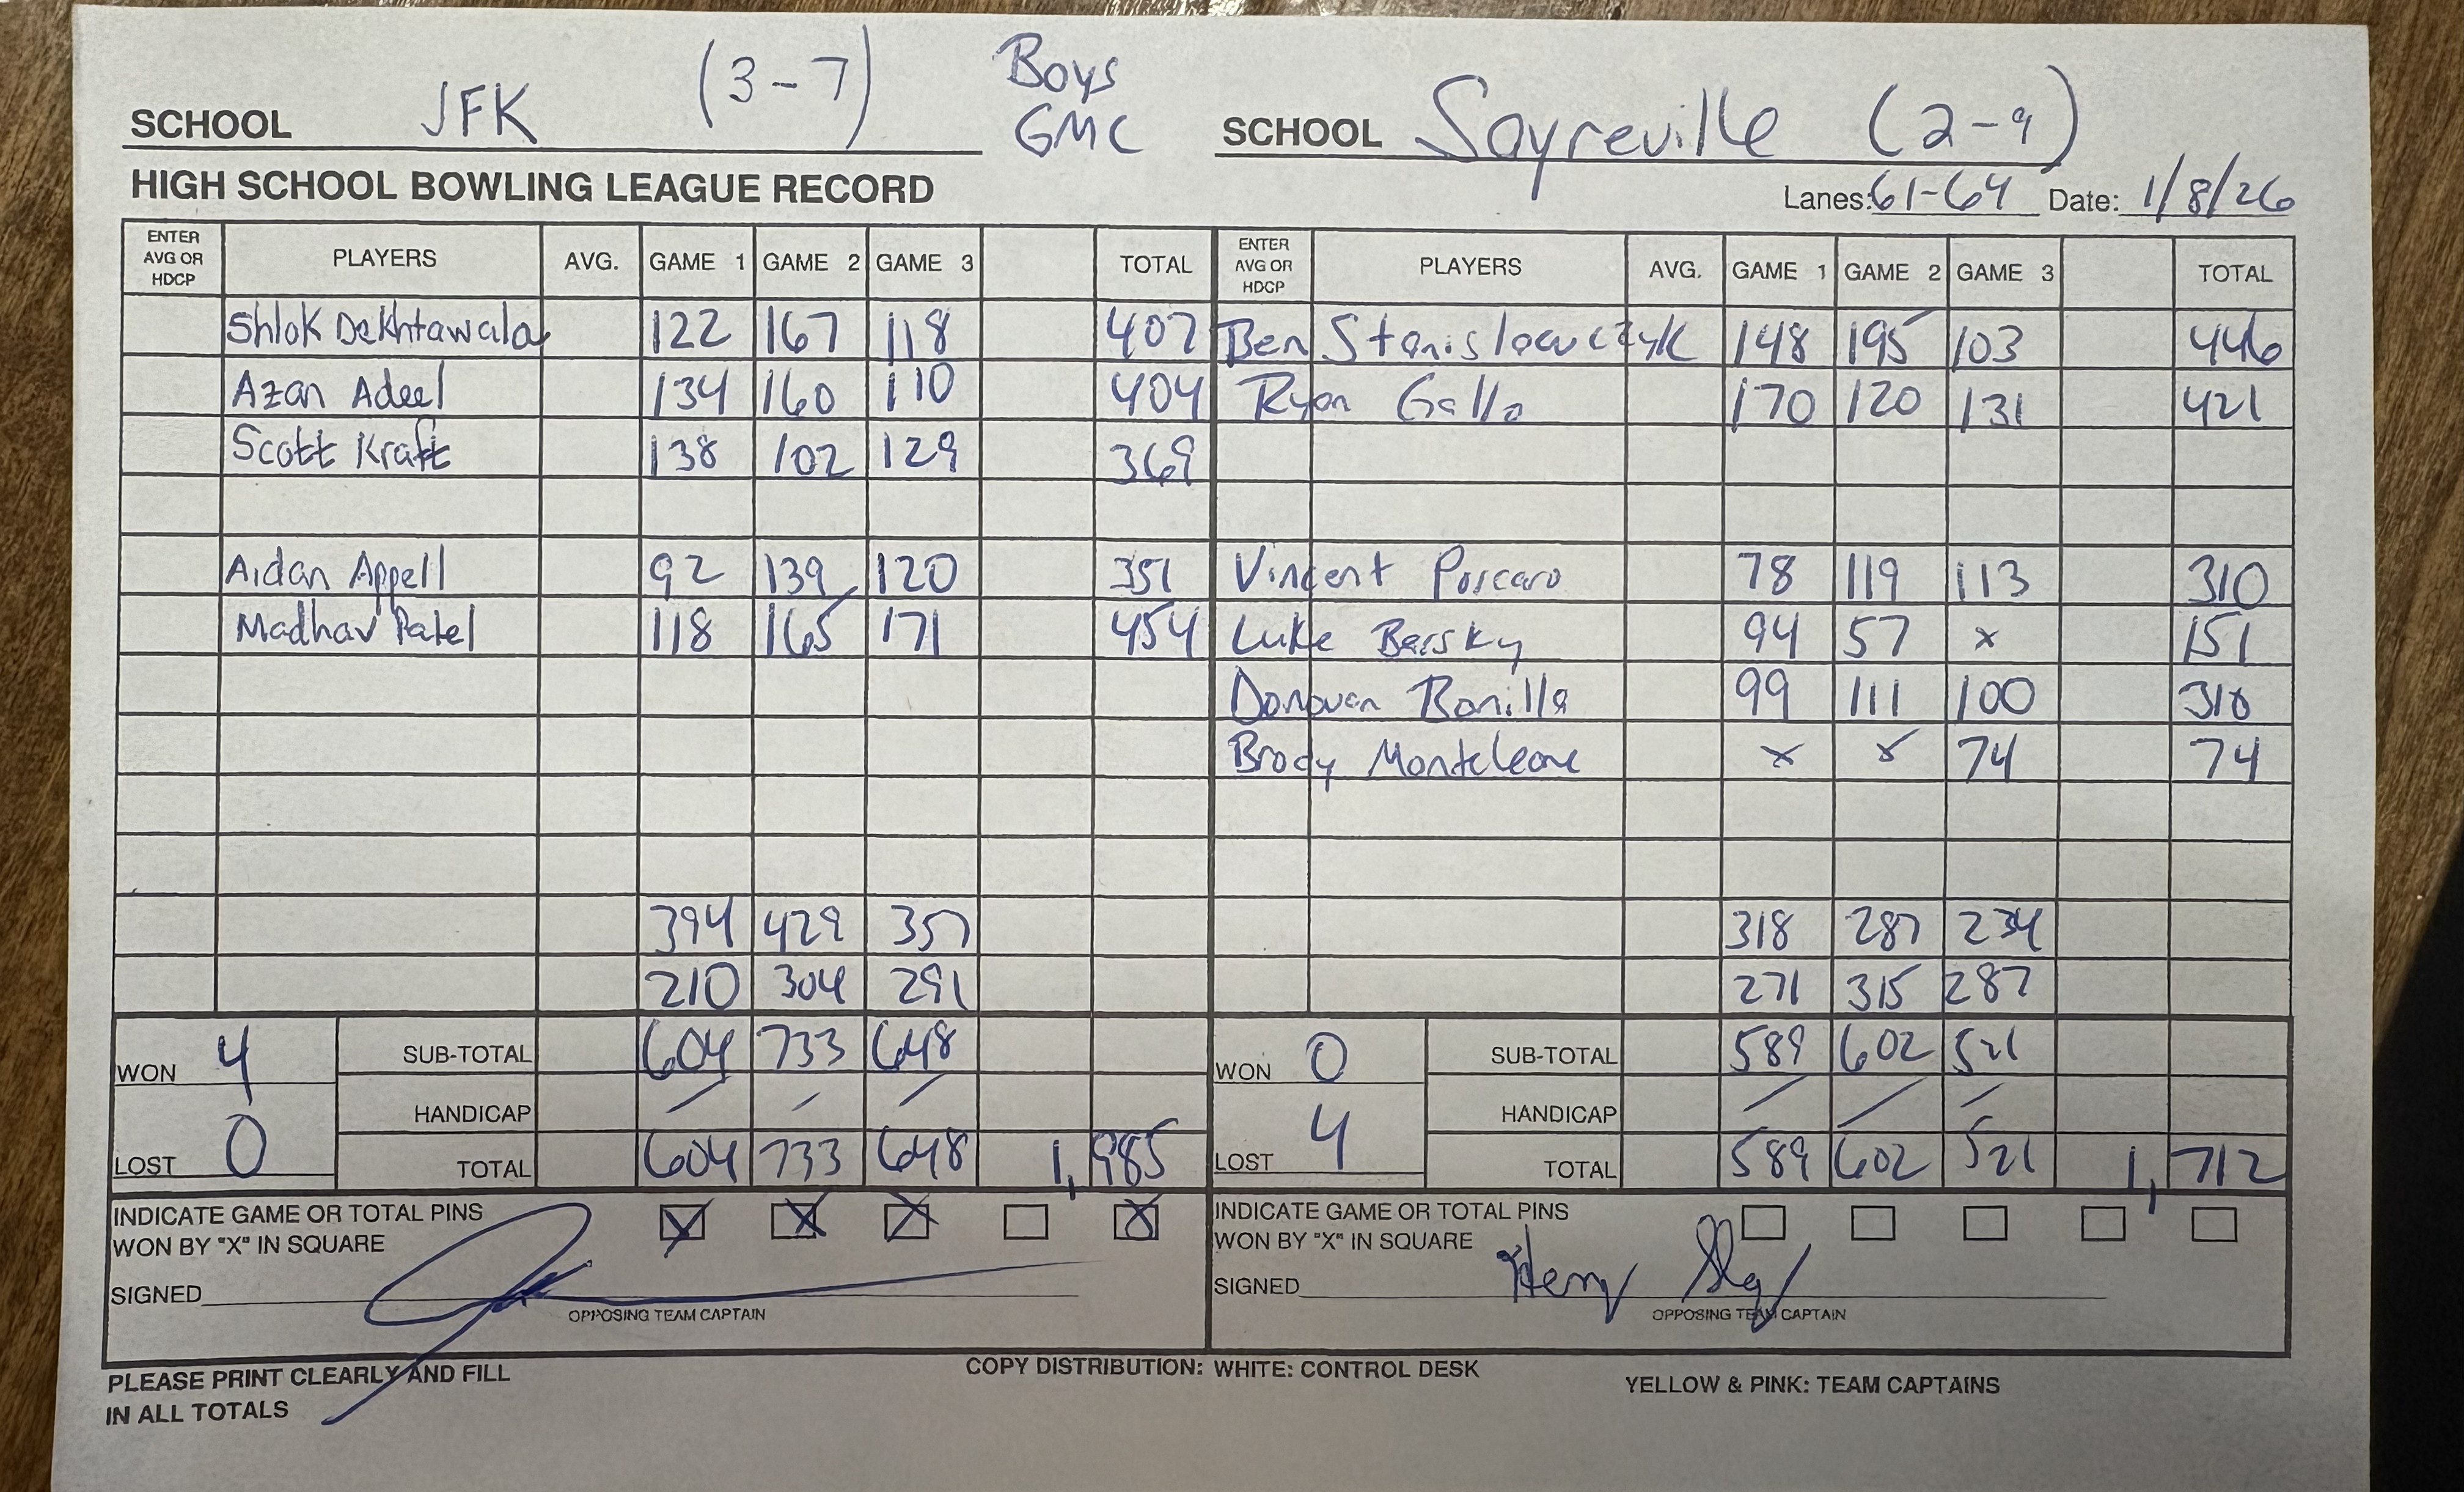 SCHOOL JFK (3-7) Boys GMC SCHOOL Sayreville (2-9)
HIGH SCHOOL BOWLING LEAGUE RECORD Lanes: 61-64 Date: 1/8/26
ENTER AVG OR HDCP PLAYERS AVG. GAME 1 GAME 2 GAME 3 TOTAL ENTER AVG OR HDCP PLAYERS AVG. GAME 1 GAME 2 GAME 3 TOTAL
Shlok Dekhtawala 122 167 118 407 Ben Stanislawczyk 148 195 103 446
Azan Adeel 134 160 110 404 Ryan Gallo 170 120 131 421
Scott Kraft 138 102 129 369
Aidan Appell 92 139 120 351 Vincent Porcaro 78 119 113 310
Madhav Patel 118 165 171 454 Luke Bersky 94 57 x 151
Donovan Bonilla 99 111 100 310
Brody Monteleone x x 74 74
394 429 357 318 287 234
210 304 291 271 315 287
WON 4 SUB-TOTAL 604 733 648 WON 0 SUB-TOTAL 589 602 521
HANDICAP / / / HANDICAP / / /
LOST 0 TOTAL 604 733 648 1,985 LOST 4 TOTAL 589 602 521 1,712
INDICATE GAME OR TOTAL PINS X X X X INDICATE GAME OR TOTAL PINS
WON BY "X" IN SQUARE WON BY "X" IN SQUARE
SIGNED SIGNED Henry
OPPOSING TEAM CAPTAIN OPPOSING TEAM CAPTAIN
PLEASE PRINT CLEARLY AND FILL COPY DISTRIBUTION: WHITE: CONTROL DESK YELLOW & PINK: TEAM CAPTAINS
IN ALL TOTALS